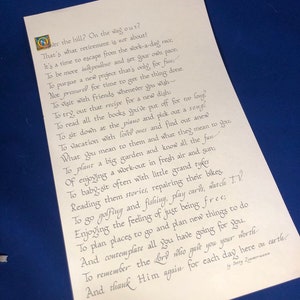 Over the hill? On the way out?
That's what retirement is not about!
It's a time to escape from the work-a-day race,
To be more independent and set your own pace.
To pursue a new project that's only for fun—
Not pressured for time to get the thing done.
To visit with friends whenever you wish—
To try out that recipe for a new dish.
To read all the books you've put off for so long!
To sit down at the piano and pick out a song!
To vacation with loved ones and find out anew
What you mean to them and what they mean to you.
To plant a big garden and know all the fun
Of enjoying a workout in fresh air and sun.
To baby-sit often with little grand tykes
Reading them stories, repairing their bikes.
To go golfing and fishing, play cards, watch T.V.
Enjoying the feeling of just being free;
To plan places to go and plan new things to do
And contemplate all you have going for you.
To remember the Lord who gave you your worth
And thank Him again for each day here on earth.
by